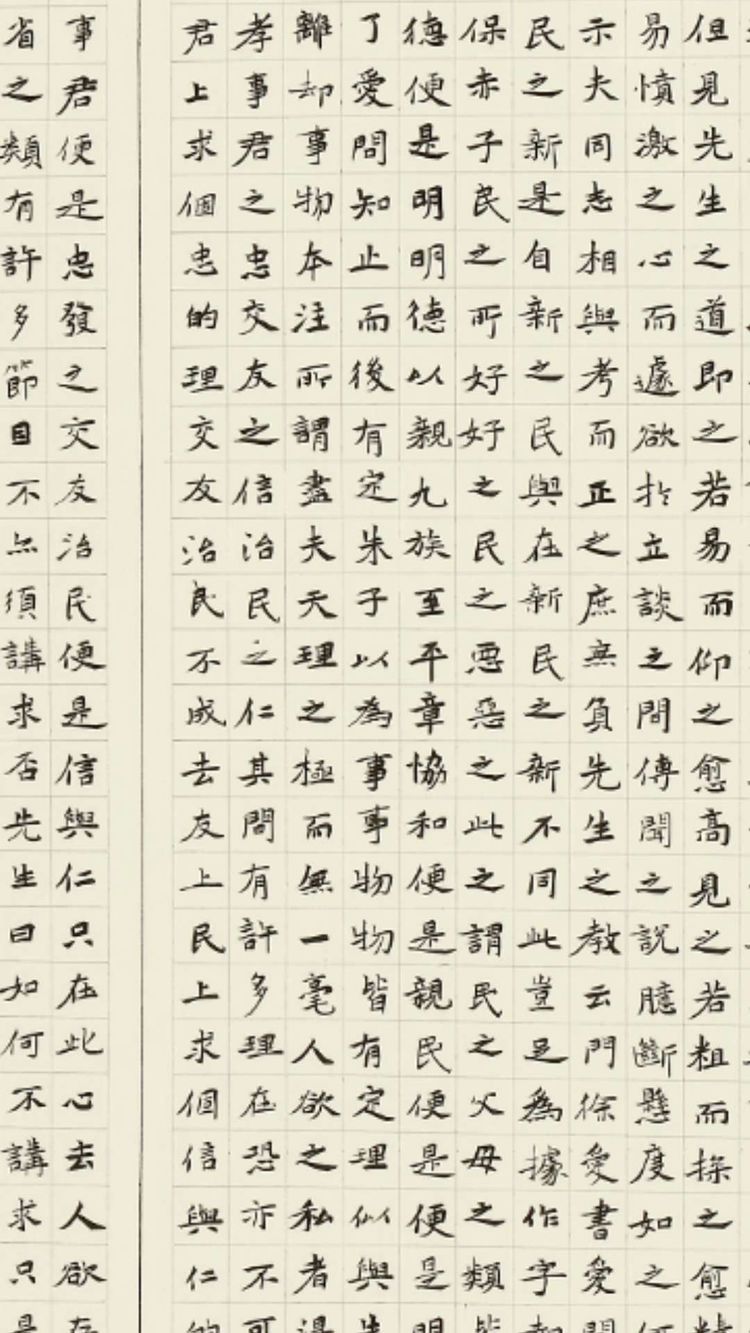 但見先生之道即之若易而仰之愈高見之若粗而探之愈精
易憤激之心而遽欲於立談之間傳聞之說臆斷懸度如之何
示夫同志相與考而正之庶無負先生之教云門徐愛書愛問
民之新是自新之民與在新民之新不同此豈足為據作字却
保赤子民之所好好之民之惡惡之此之謂民之父母之類皆
德便是明明德以親九族至平章協和便是親民便是便是明
了愛問知止而後有定朱子以為事事物物皆有定理似與先
離却事物本注所謂盡夫天理之極而無一毫人欲之私者得
孝事君之忠交友之信治民之仁其間有許多理在恐亦不可
君上求個忠的理交友治民不成去友上民上求個信與仁的
事君便是忠發之交友治民便是信與仁只在此心去人欲存
省之類有許多節目不亦須講求否先生曰如何不講求只是